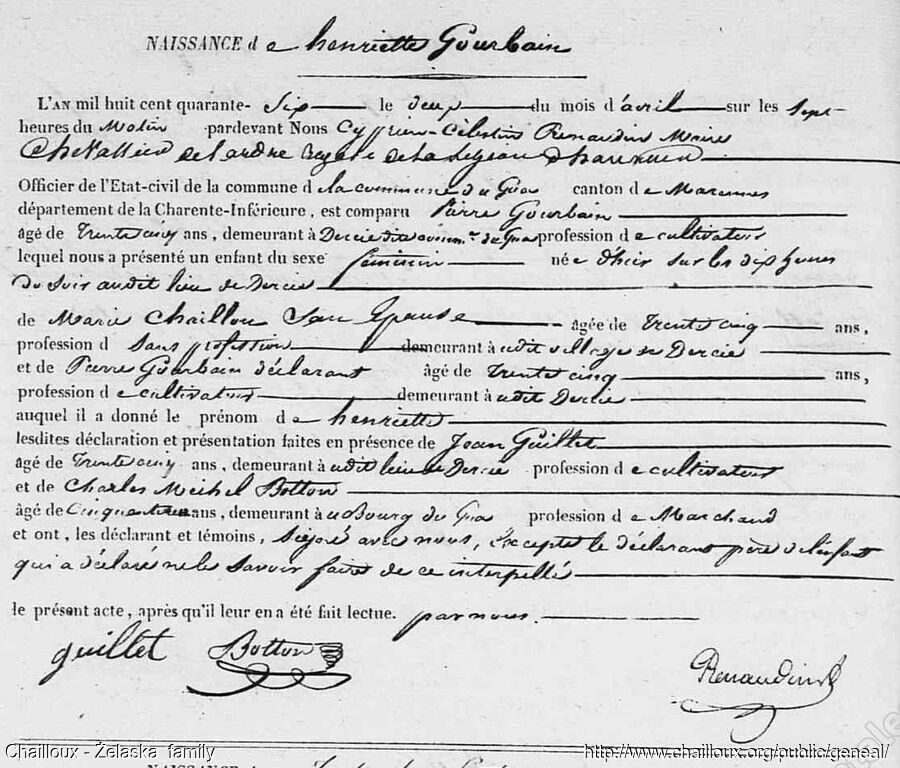 NAISSANCE de henriette Gourbain
L'AN mil huit cent quarante- Six le deux du mois d'avril sur les sept
heures du Matin pardevant Nous Cyprien-Célestin Renaudin Maire
Chevallier de l'ordre Royale de la Légion d'honneur
Officier de l'Etat-civil de la commune d la commune du Gua canton de Marennes
département de la Charente-Inférieure, est comparu Pierre Gourbain
âgé de Trente cinq ans, demeurant à Dercie dite comm.ne du Gua profession de cultivateur
lequel nous a présenté un enfant du sexe féminin née d'hier sur les dix heures
du Soir audit lieu de Dercie
de Marie Chaillou Son Epouse âgée de Trente cinq ans,
profession d Sans profession demeurant à udit village de Dercie
et de Pierre Gourbain déclarant âgé de Trente cinq ans,
profession de cultivateur demeurant à udit Dercie
auquel il a donné le prénom de henriette
lesdites déclaration et présentation faites en présence de Jean Guillet
âgé de Trente cinq ans, demeurant à udit lieu de Dercie profession de cultivateur
et de Charles Michel Botton
âgé de ans, demeurant à u Bourg du Gua profession de Marchand
et ont, les déclarant et témoins, Signé avec nous, Excepté le déclarant père de l'enfant
qui a déclaré ne le Savoir faire de ce interpellé
le présent acte, après qu'il leur en a été fait lectue. par nous.
guillet Botton
Renaudin
Chailloux - Żelaska family http://www.chailloux.org/public/geneal/